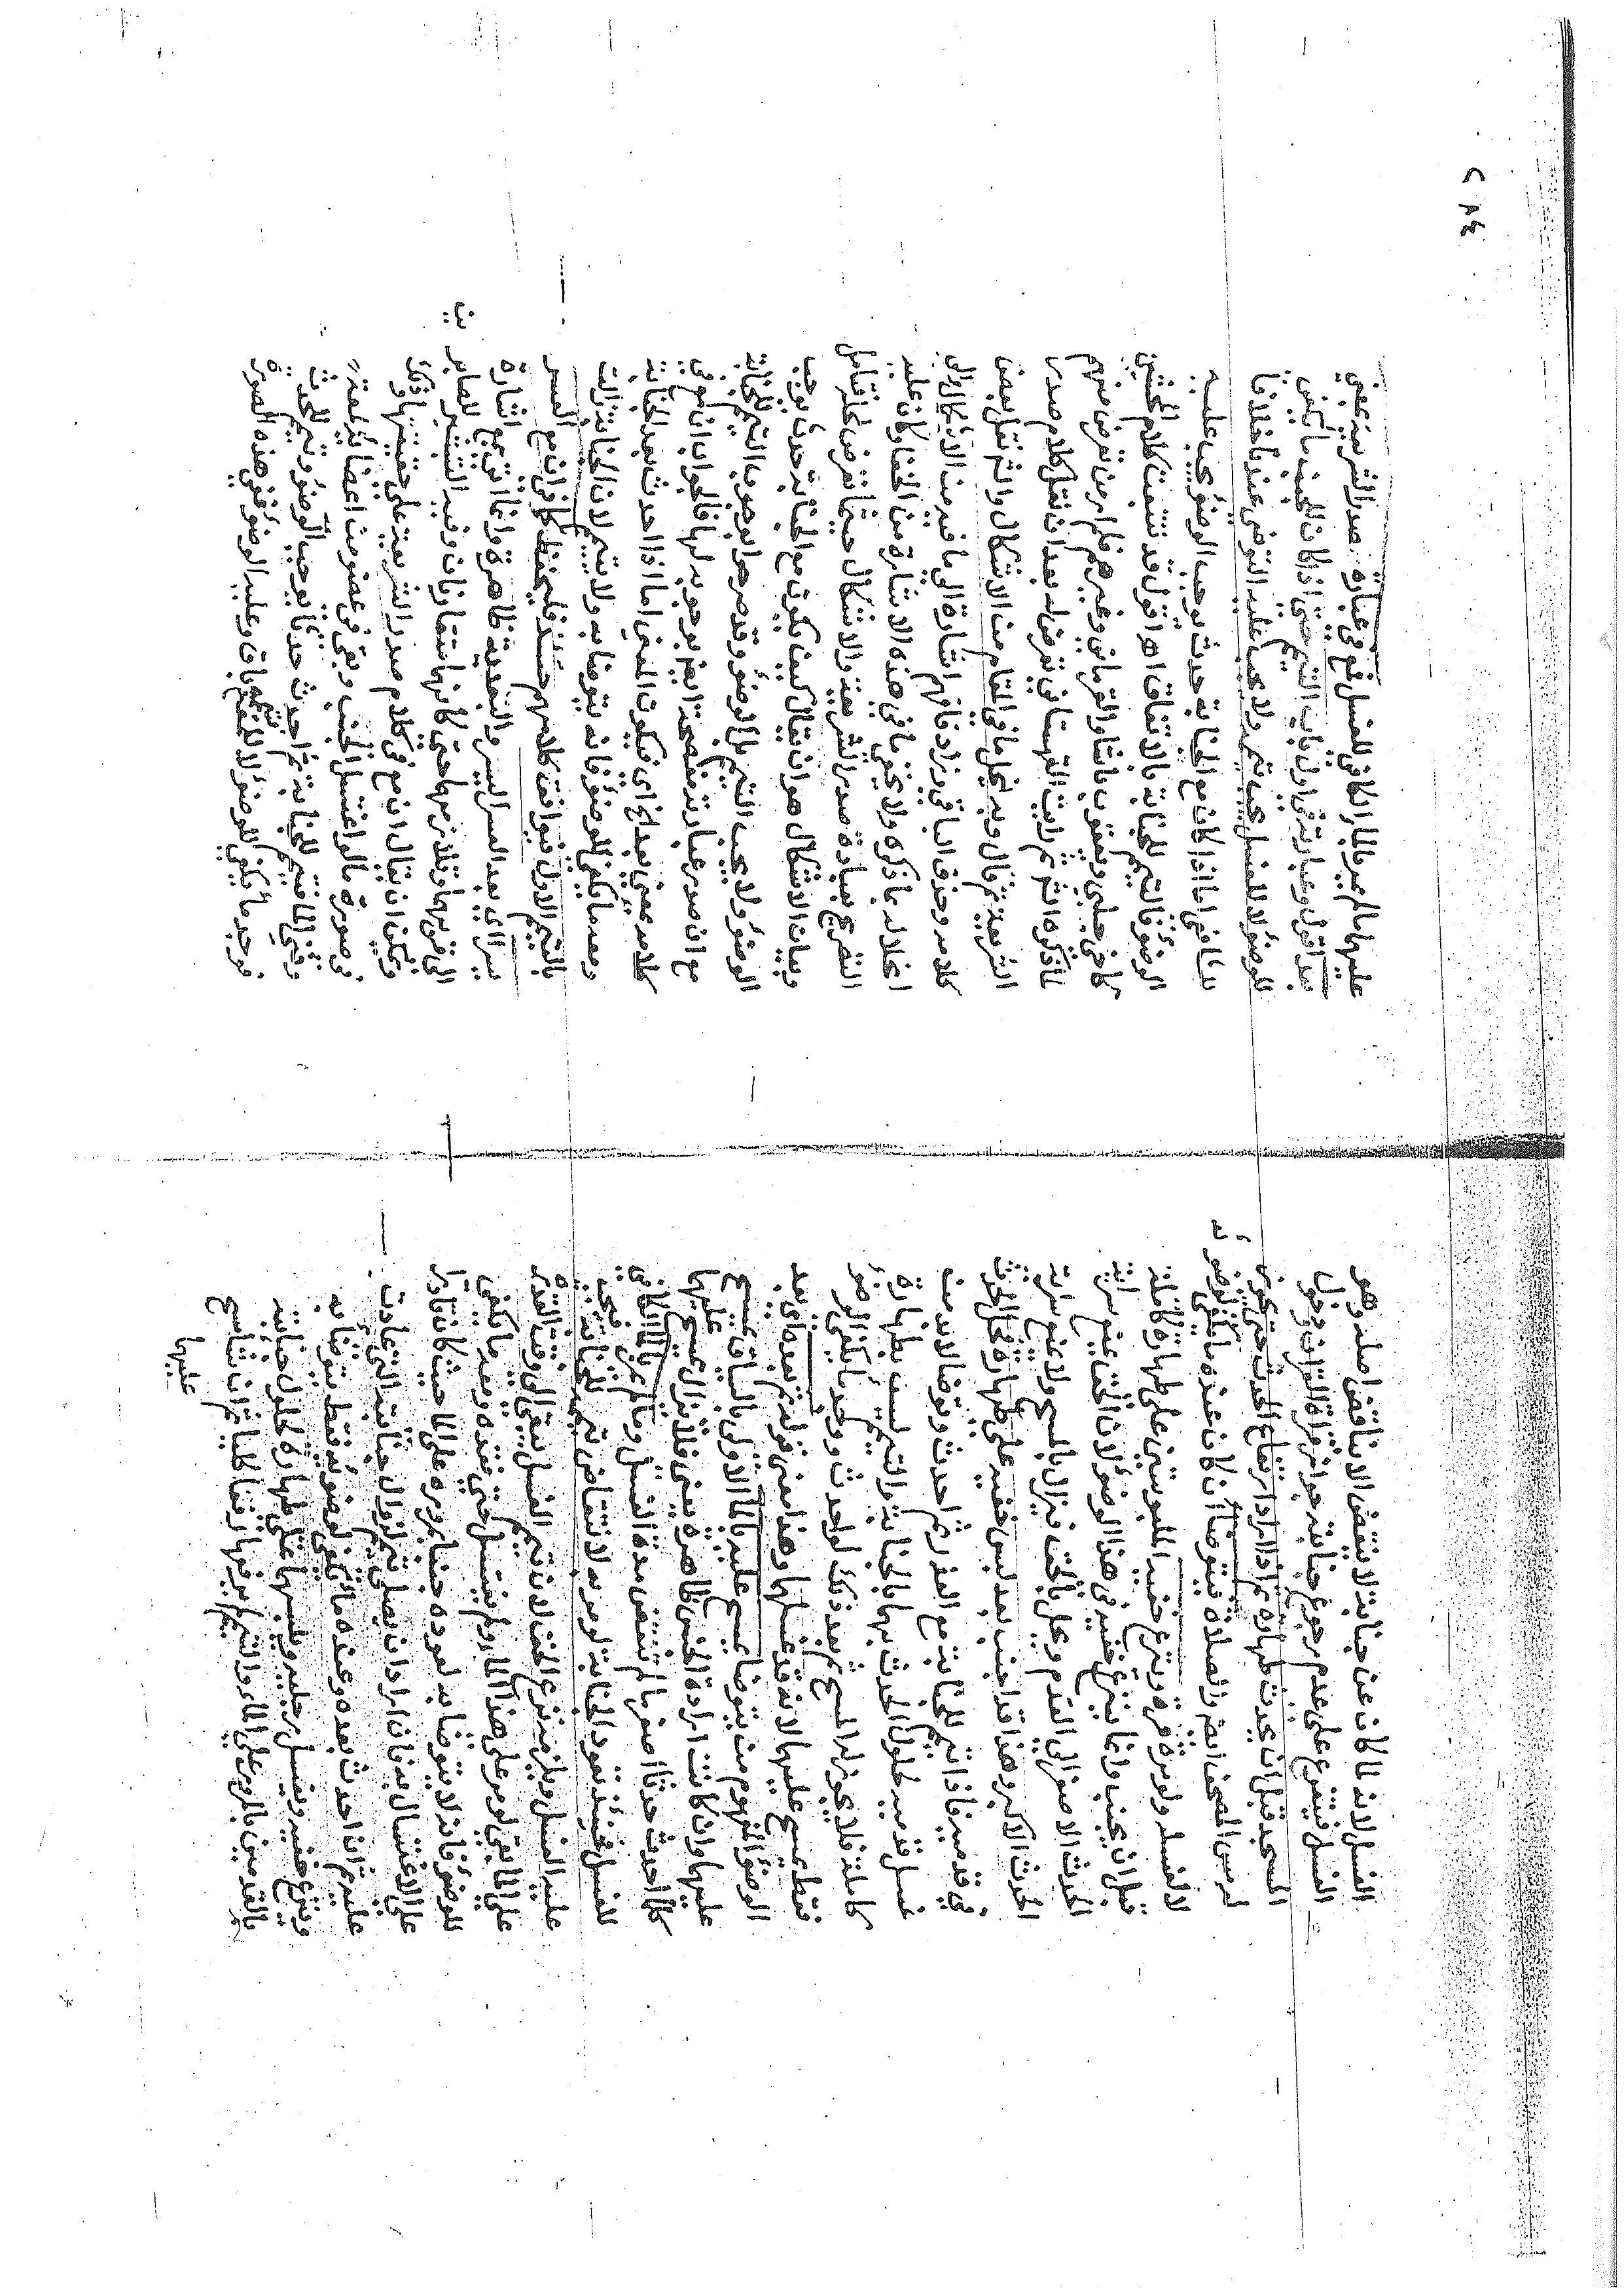 الغسل لانه لما كان عن جنابة لا ينتقض الا بناقض اصله وهو
الغسل فيتفرع على عدم رجوع جنابته جواز قراءة القران ودخول
المسجد قبل ان يحدث طهارة ثم اذا اراد ارتفاع الحدث حتى يجوز
له مس المصحف ايضا والصلاة يتوضأ ان كان عنده ما يكفي لوضوئه
لا لغسله ولو مرة مرة وينزع خفيه الملبوستين على طهارة كاملة
قبل ان يجنب وانما ينزع خفيه في هذا الوضوء لان الخف يمنع سراية
الحدث الاصغر الى القدم ويحل بالخف فيزال بالمسح ولا يمنع سراية
الحدث الاكبر وهذا قد اجنب بعد لبس خفيه على طهارة فحل الحدث
في قدميه فاذا تيمم للجنابة مع العذر ثم احدث وتوضأ لا بد من
غسل قدميه لحلول الحدث بهما بالجنابة والتيمم ليست بطهارة
كاملة فلا يجوز له المسح ثم بعد ذلك لو احدث ووجد ما يكفي الوضوء
فقط يمسح عليهما لانه قد غسلهما وهذا معنى قوله ثم بعده اي بعد
الوضوء المفهوم من يتوضأ يمسح عليه بالماء الاول بالسابق يمسح
عليهما وان كانت ارادة الخف ظاهرة يعني فلا يزال يمسح عليهما
كلما احدث حدثا اصغر مالم تنتقض مدة ومالم يمر بالماء الكافي
للغسل فحينئذ تعود الجنابة لو مر به لانتقاض تيمم الجنابة فيجب
عليه الغسل ويلزمه نزع الخف لان تيمم الغسل يبقى الى وقت القدرة
على الماء بقي لو مر على هذا الماء ولم يغتسل حتى فقده ومعه ما يكفي
للوضوء فانه لا يتوضأ به لعوده جنبا بمروره على الماء حيث كان قادرا
على الاغتسال به فان اراد ان يصلي تيمم لزوال جنابته التي عادت
عليه ثم ان احدث بعده وعنده ما يكفي لوضوئه فقط يتوضأ به
وينزع خفيه ويغسل رجليه ويلبسهما على طهارة لحلول جنابته
بالقدمين بالمرور على الماء والتيمم لم يرفعها رفعا كليا ثم ان شا مسح
عليهما
عليهما مالم يمر بالماء الكافي للغسل وقع في عبارة صدر الشريعة يعني
بعد قوله وعبارته في اول باب التيمم حتى اذا كان للجنب ماء يكفي
للوضوء لا للغسل يجب تيمم ولا يجب عليه التوضئ عندنا خلافا
للشافعي اما اذا كان مع الجنابة حدث يوجب الوضوء يجب عليه
الوضوء فالتيمم للجنابة بالاتفاق اهـ اقول قد تتبعت كلام المحشين
كاخي جلبي ويعقوب باشا والقرماني وغيرهم فلم ار من تعرض منهم
لما ذكره ثم رايت القهستاني تعرض له بعد ان نقل كلام صدر
الشريعة ثم قال وبه ينحل ما في المقام من الاشكال
كلامه وحذف الباقي وزاد فافهم اشارة الى ما فيه من الاشكال والى
اخلاله بما ذكره ولا يخفى ما في هذه الاشارة من الخفاء وكان عليه
التصريح بعبارة صدر الشريعة والاشكال حيثما تعرض لحله تامل
وبيان الاشكال هو ان يقال كيف يكون مع الجنابة حدث يوجب
الوضوء ولا يجب التيمم الا للوضوء وقد صرحوا بوجوب التيمم للجنابة
مع ان صدر عبارته مفصحة ايضا بوجوبه لها فالجواب ان مع في
كلامه بمعنى بعد الخ اي فيكون المعنى اما اذا احدث بعد الجنابة
ومعه ما يكفي للوضوء فانه يتوضأ به ولا يتيمم لان الجنابة زالت
بالتيمم الاول فيوافق كلامهم حينئذ فليحفظ كما في ان مع العسر
يسرا اي بعد العسر اليسر والبعدية ظاهرة وانما اتى بمع اشارة
الى قربهما وتلازمهما حتى كانهما متقارنان وفيه التبشير للصابر
ويمكن ان يقال ان مع في كلام صدر الشريعة على حقيقتها وذلك
في صورة ما لو اغتسل الجنب وبقي في عضو من اعضائه لمعة
وفني الماء فتيمم للجنابة ثم احدث حدثا يوجب الوضوء وتيمم للحدث
فوجد ما يكفي للوضوء لا للمعة فتيممه باق وعليه الوضوء ففي هذه الصورة